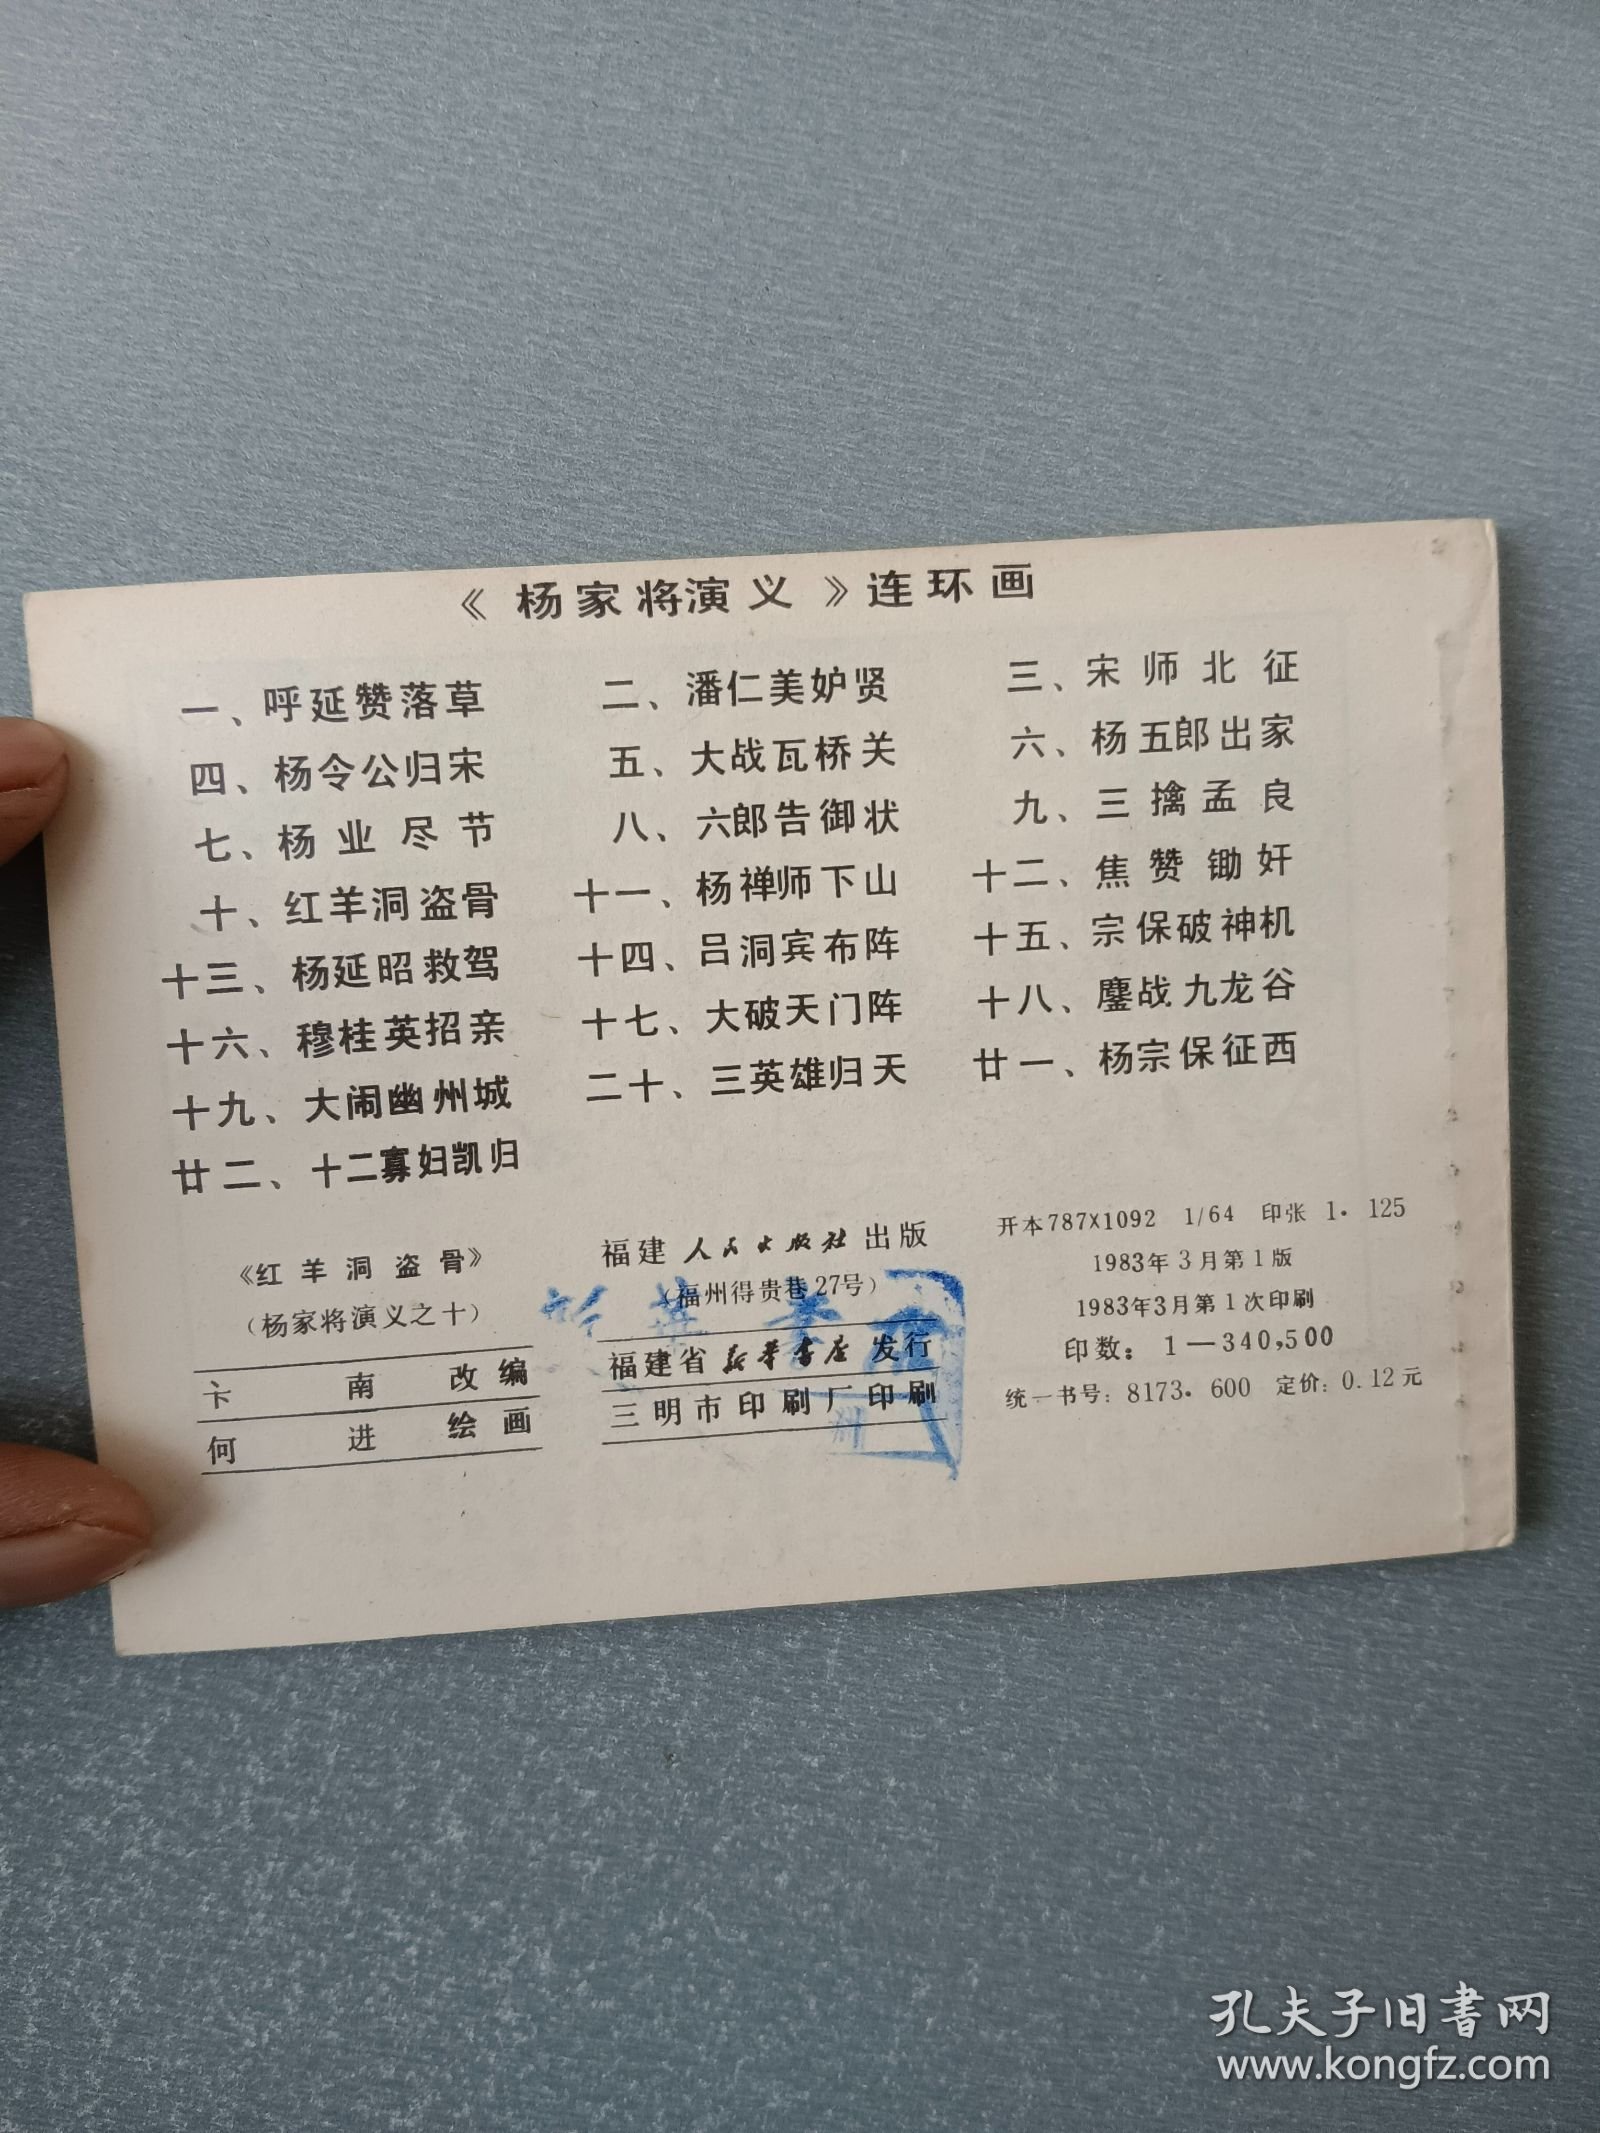 《杨家将演义》连环画
一、呼延赞落草 二、潘仁美妒贤 三、宋师北征
四、杨令公归宋 五、大战瓦桥关 六、杨五郎出家
七、杨业尽节 八、六郎告御状 九、三擒孟良
十、红羊洞盗骨 十一、杨禅师下山 十二、焦赞锄奸
十三、杨延昭救驾 十四、吕洞宾布阵 十五、宗保破神机
十六、穆桂英招亲 十七、大破天门阵 十八、鏖战九龙谷
十九、大闹幽州城 二十、三英雄归天 廿一、杨宗保征西
廿二、十二寡妇凯归
《红羊洞盗骨》
（杨家将演义之十）
卞南改编
何进绘画
福建人民出版社出版
（福州得贵巷27号）
福建省新华书店发行
三明市印刷厂印刷
开本787X1092 1/64 印张 1.125
1983年3月第1版
1983年3月第1次印刷
印数：1—340,500
统一书号：8173.600 定价：0.12元
孔夫子旧书网
www.kongfz.com